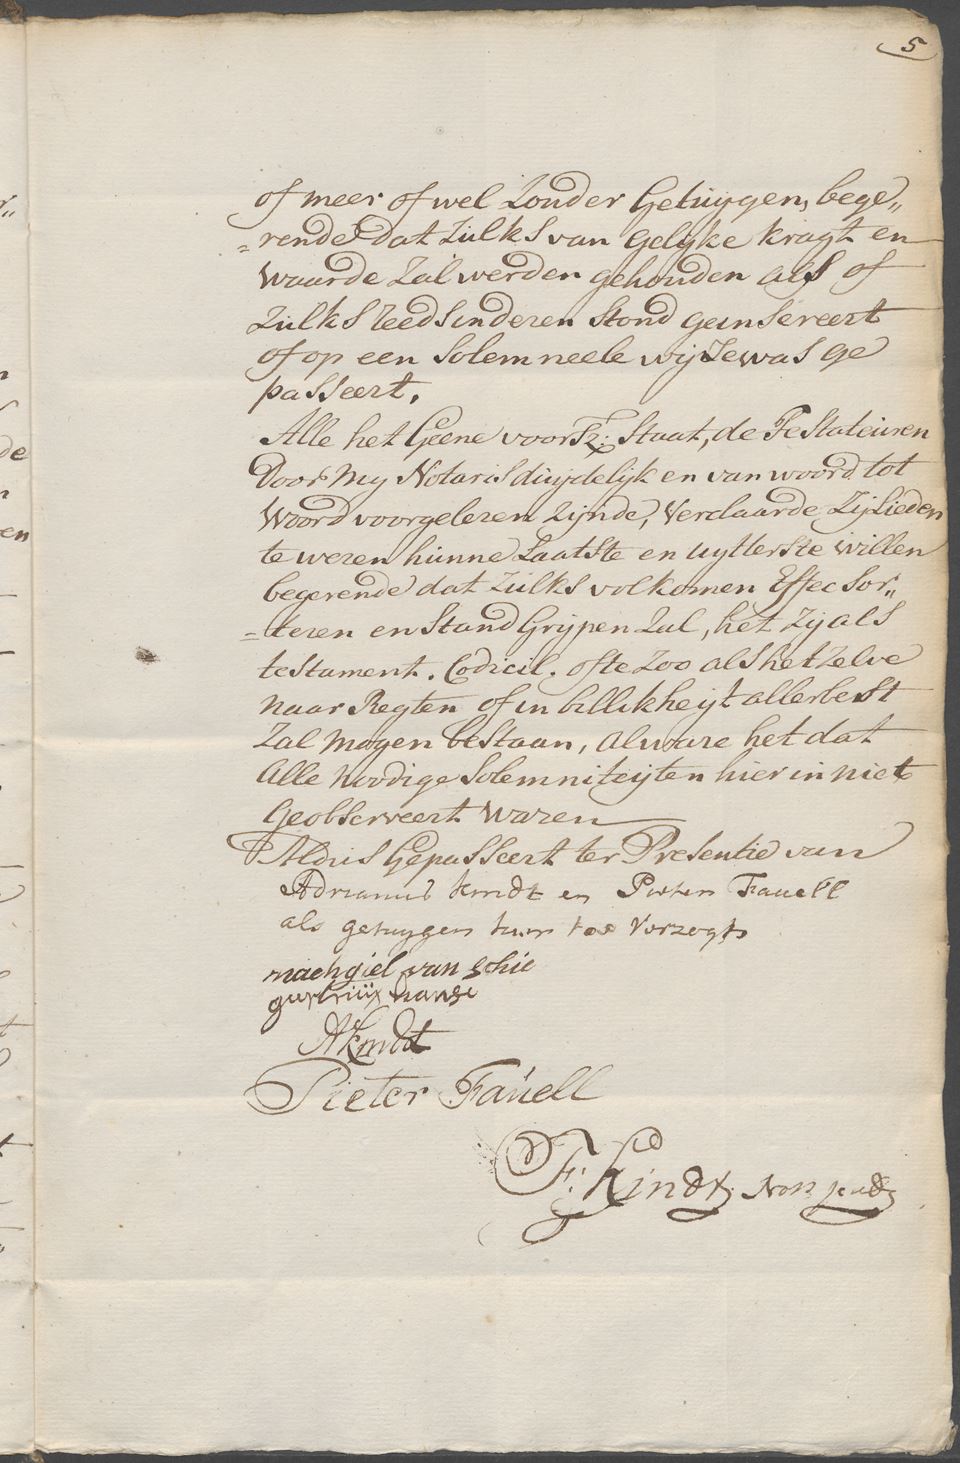 5
of meer of wel zonder Getuijgen, bege„
=rende dat zulks van gelijke kragt en
waarde zal werden gehouden als of
zulks reeds in deren stond geinsereert
of op een solemneele wijze was ge
passeert.
Alle het Geene voorsz: Staat, de Testateuren
Door My Notaris duijdelijk en van woord tot
woord voorgelezen zijnde, verclaarde zij Lieden
te wezen hunne Laatste en uytterste willen
begerende dat zulks volkomen Effec sor„
=teren en stand Grijpen zal, het zij als
testament. Codicil. ofte zoo als het zelve
naar Regten of in billikheijt allerbest
zal mogen bestaan, alware het dat
alle nodige solemniteijten hier in niet
geobserveert waren
Aldus Gepasseert ter Presentie van
Adrianus Kindt en Pieter Fauell
als getuygen hier toe verzogt
machgiel van schie
geertruijt
AKindt
Pieter Fauell
F: Kindt Nots